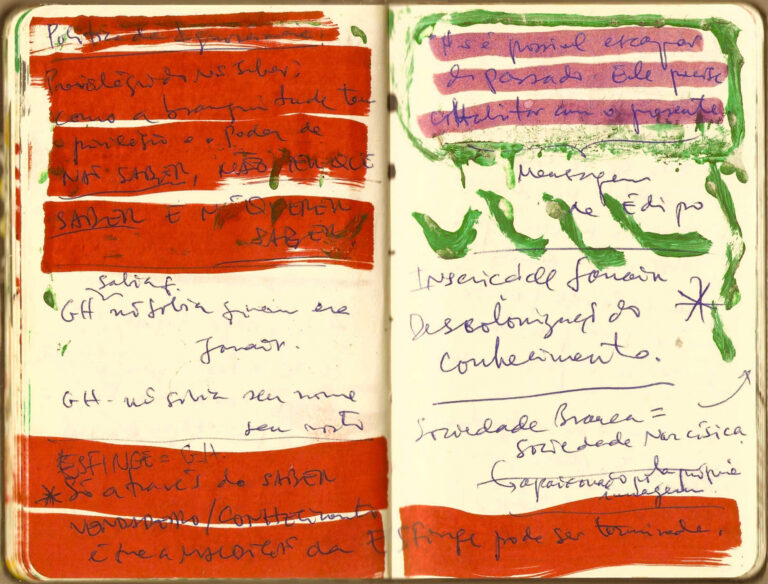 Política da Ignorância.
Privilégio do Ñ Saber:
como a branquitude tem
o privilégio e o Poder de
NÃO SABER, NÃO TER QUE
SABER E NÃO QUERER
SABER.
sabia q.
GH ñ sabia quem era
Janair.
GH – ñ sabia seu nome
seu rosto
ESFINGE = G.H.
* Só através do SABER
VERDADEIRO/CONHECIMENTO
é que a MALDIÇÃO da
Ñ é possível escapar
do passado Ele precisa
coHabitar com o presente
Mensagem
de Édipo
Janair
Descolonização do *
conhecimento.
Sociedade Branca =
Sociedade Narcísica
apaixonada pela própria
imagem.
Esfinge pode ser terminada.